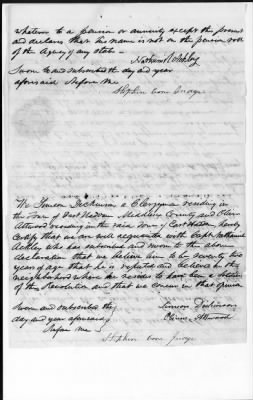 whatever to a pension or annuity except the present
and declares that his name is not on the pension roll
of the Agency of any state —
Nathaniel Ackley
Sworn to and subscribed the day and year
aforesaid Before me
Stephen Cone Judge
We Simeon Dickinson a Clergyman residing in
the Town of East Haddam Middlesex County and Oliver
Attwood residing in the said Town of East Haddam hereby
Certify that we are well acquainted with Capt Nathaniel
Ackley who has subscribed and sworn to the above
declaration that we believe him to be seventy two
years of age that he is reputed and believed in the
neighborhood where he resides to have been a Soldier
of the Revolution and that we concur in that opinion
Sworn and subscribed the
day and year aforesaid
Before me —
Simeon Dickinson
Oliver Attwood
Stephen Cone Judge